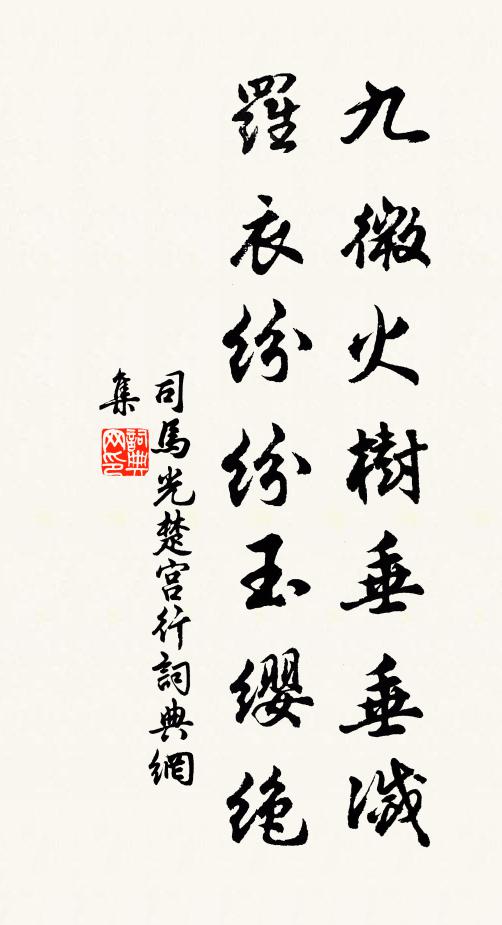 九微火樹垂垂滅
羅衣紛紛玉纓絶
司馬光楚宮行詞典網
集
詞典网印